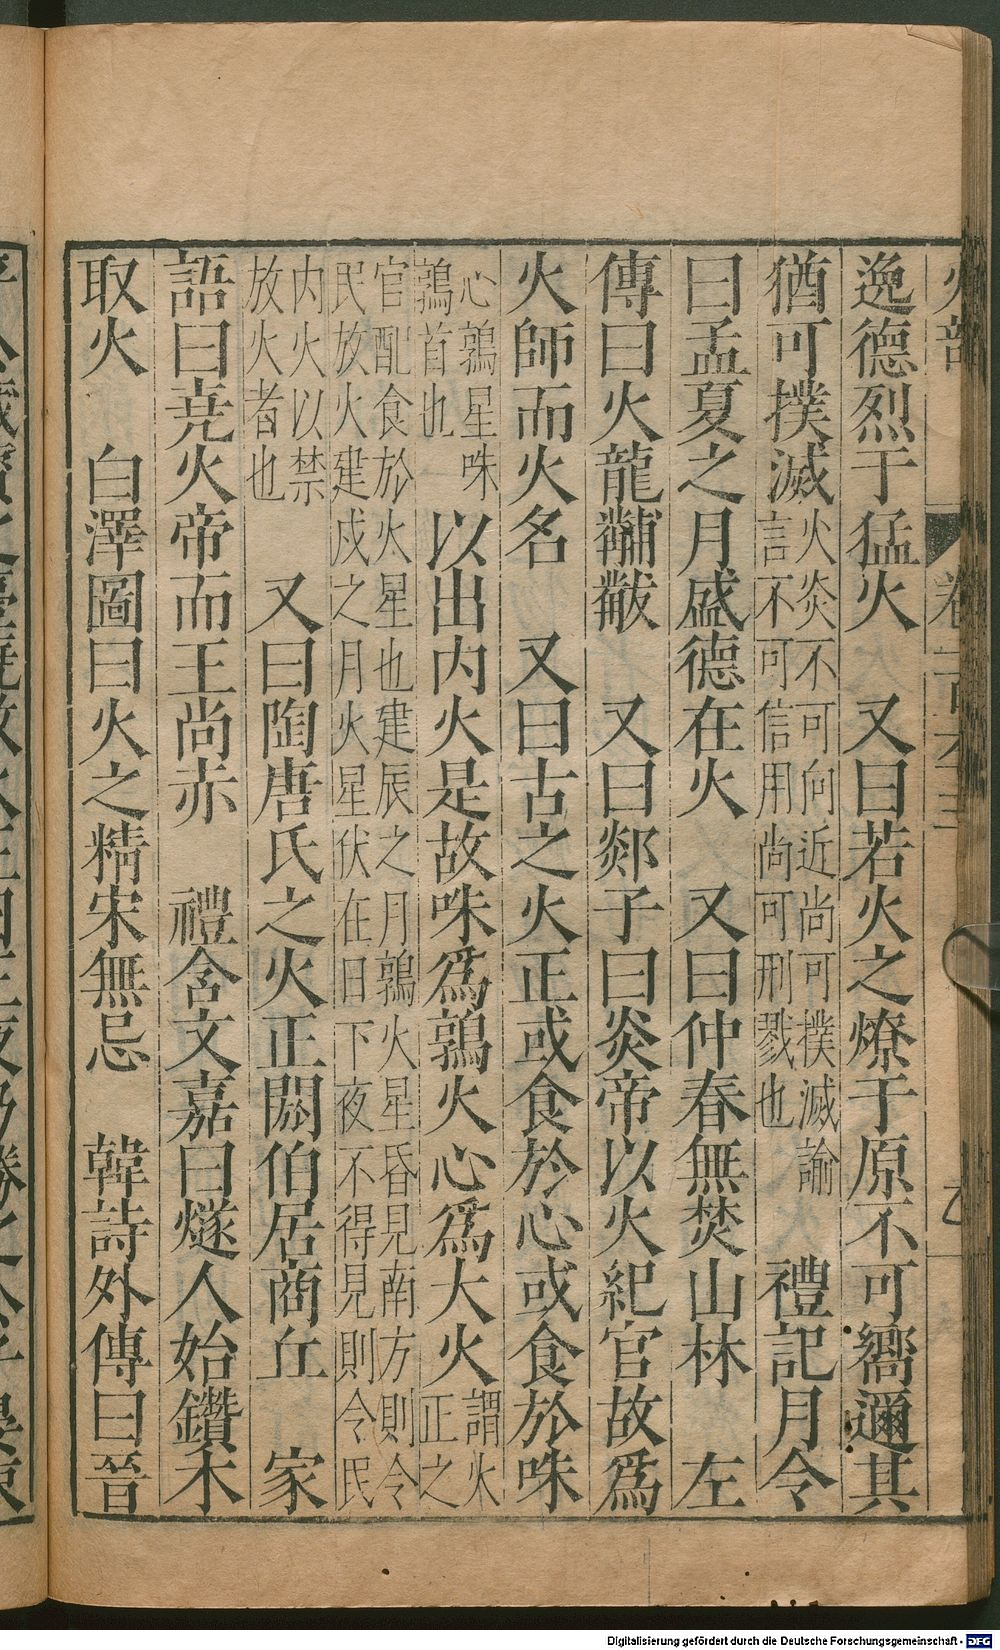 火部
逸德烈于猛火　又曰若火之燎于原不可嚮邇其
猶可撲滅
火炎不可向近尚可撲滅諭
言不可信用尚可刑戮也
禮記月令
曰孟夏之月盛德在火　又曰仲春無焚山林　左
傳曰火龍黼黻　又曰郯子曰炎帝以火紀官故爲
火師而火名　又曰古之火正或食於心或食於咮
心鶉星咮
鶉首也
以出内火是故咮爲鶉火心爲大火
謂火
正之
官配食於火星也建辰之月鶉火星昏見南方則令
民放火建戍之月火星伏在日下夜不得見則令民
内火以禁
放火者也
又曰陶唐氏之火正閼伯居商丘　家
語曰尭火帝而王尚赤　禮含文嘉曰燧人始鑽木
取火　白澤圖曰火之精宋無忌　韓詩外傳曰晉
Digitalisierung gefördert durch die Deutsche Forschungsgemeinschaft - DFG